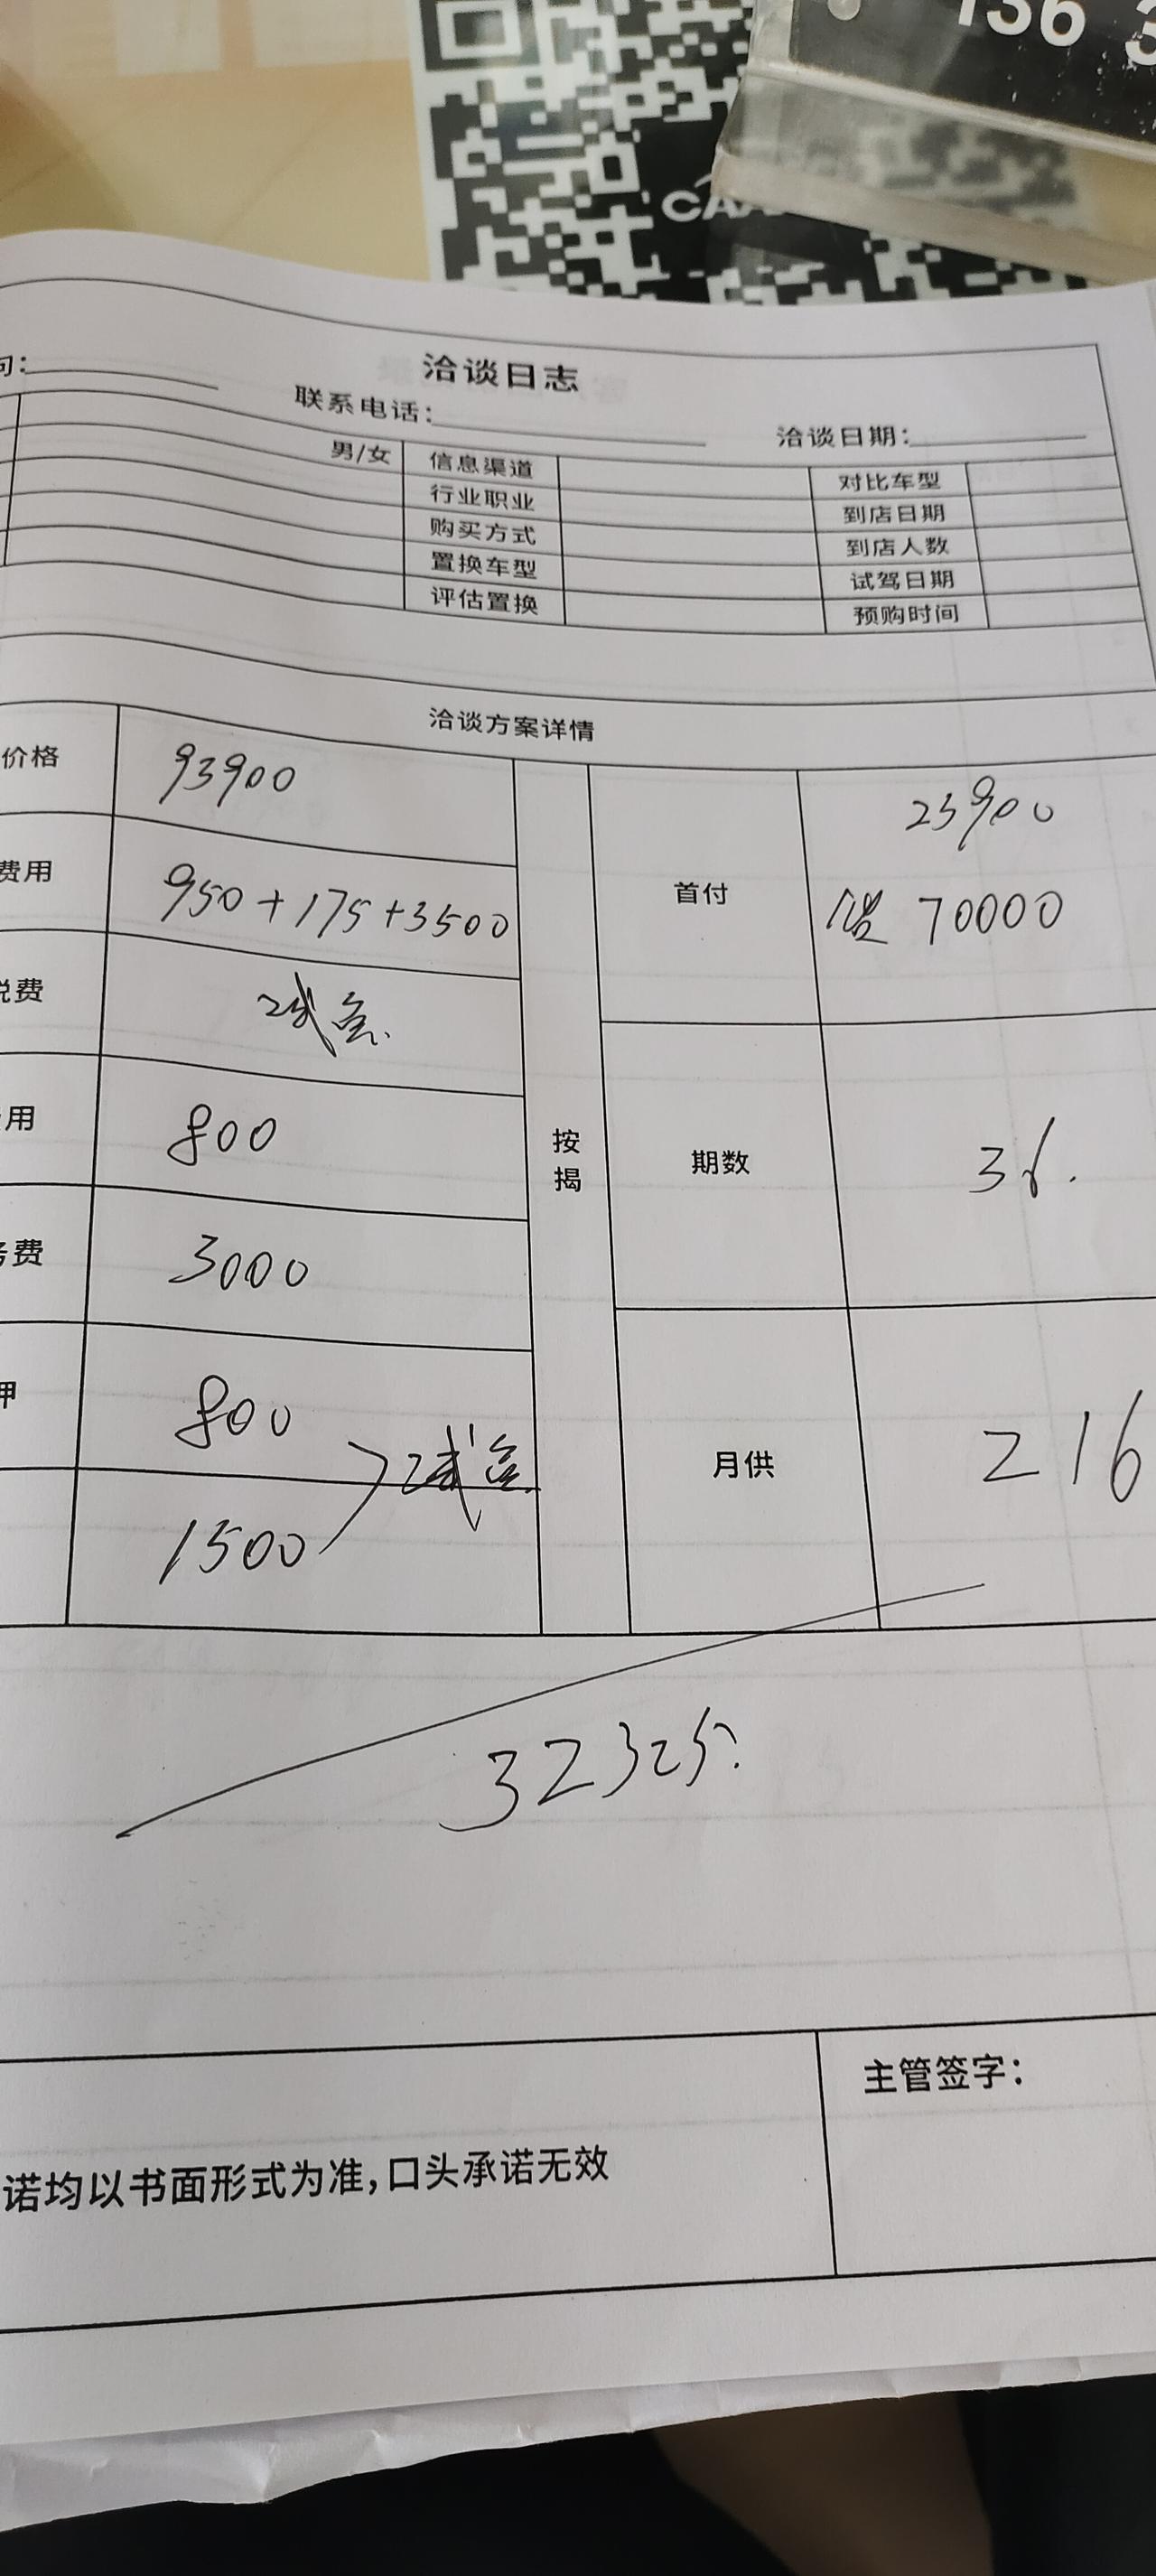 136 3
CA
洽谈日志
问:
联系电话:
洽谈日期:
男/女 信息渠道 对比车型
行业职业 到店日期
购买方式 到店人数
置换车型 试驾日期
评估置换 预购时间
洽谈方案详情
价格 93900
费用 950+175+3500
税费
用 800
务费 3000
押 800
1500
按揭
首付 23900
贷 70000
期数 36.
月供 216
32325.
主管签字:
诺均以书面形式为准,口头承诺无效